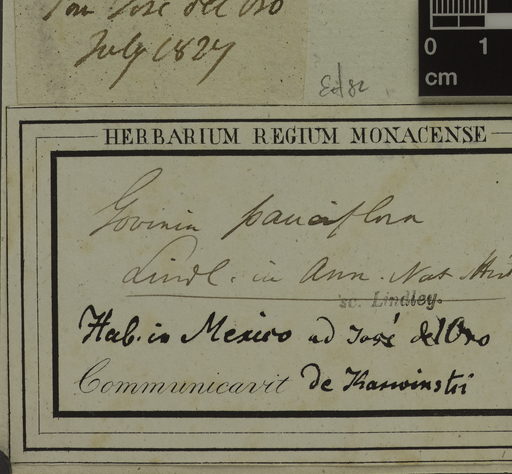 San José del Oro
July 1827
0 1
cm
HERBARIUM REGIUM MONACENSE
Govinia pauciflora
Lindl. in Ann. Nat Hist
sc. Lindley.
Hab. in Mexico ad José del Oro
Communicavit de Karwinski